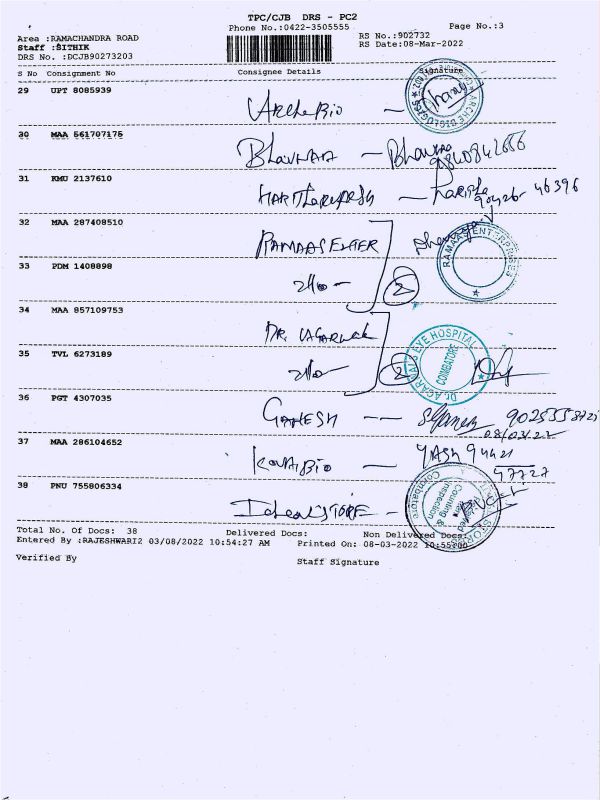 TPC/CJB DRS - PC2
Phone No.:0422-3505555
Page No.:3
Area :RAMACHANDRA ROAD
RS No.:902732
Staff :SITHIK
RS Date:08-Mar-2022
DRS No. :DCJB90273203
S No Consignment No Consignee Details Signature
29 UPT 8085939
Arche Bio —
30 MAA 561707175
Bhavnaa — Bhavna
9840842666
31 KMU 2137610
— Harisha
46396
32 MAA 287408510
RAMAAS ENTER
RAMAA ENTERPRISES
33 PDM 1408898
2
34 MAA 857109753
DR. AGARWAL
Dr. AGARWAL'S EYE HOSPITAL
COIMBATORE
35 TVL 6273189
2
36 PGT 4307035
GANESH --
08/03/22
37 MAA 286104652
KOVAI BIO — YASH 94421
47727
38 PNU 755806334
Ideal STORE —
Total No. Of Docs: 38 Delivered Docs: Non Delivered Docs:
Entered By :RAJESHWARI2 03/08/2022 10:54:27 AM Printed On: 08-03-2022 10:55:00
Verified By
Staff Signature